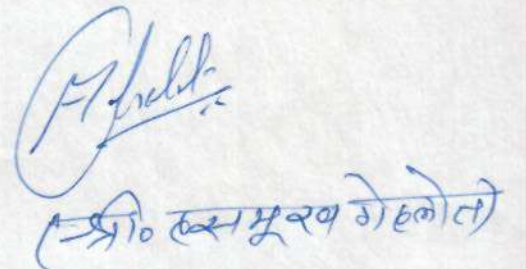 (श्री० हसमुख गेहलोत)